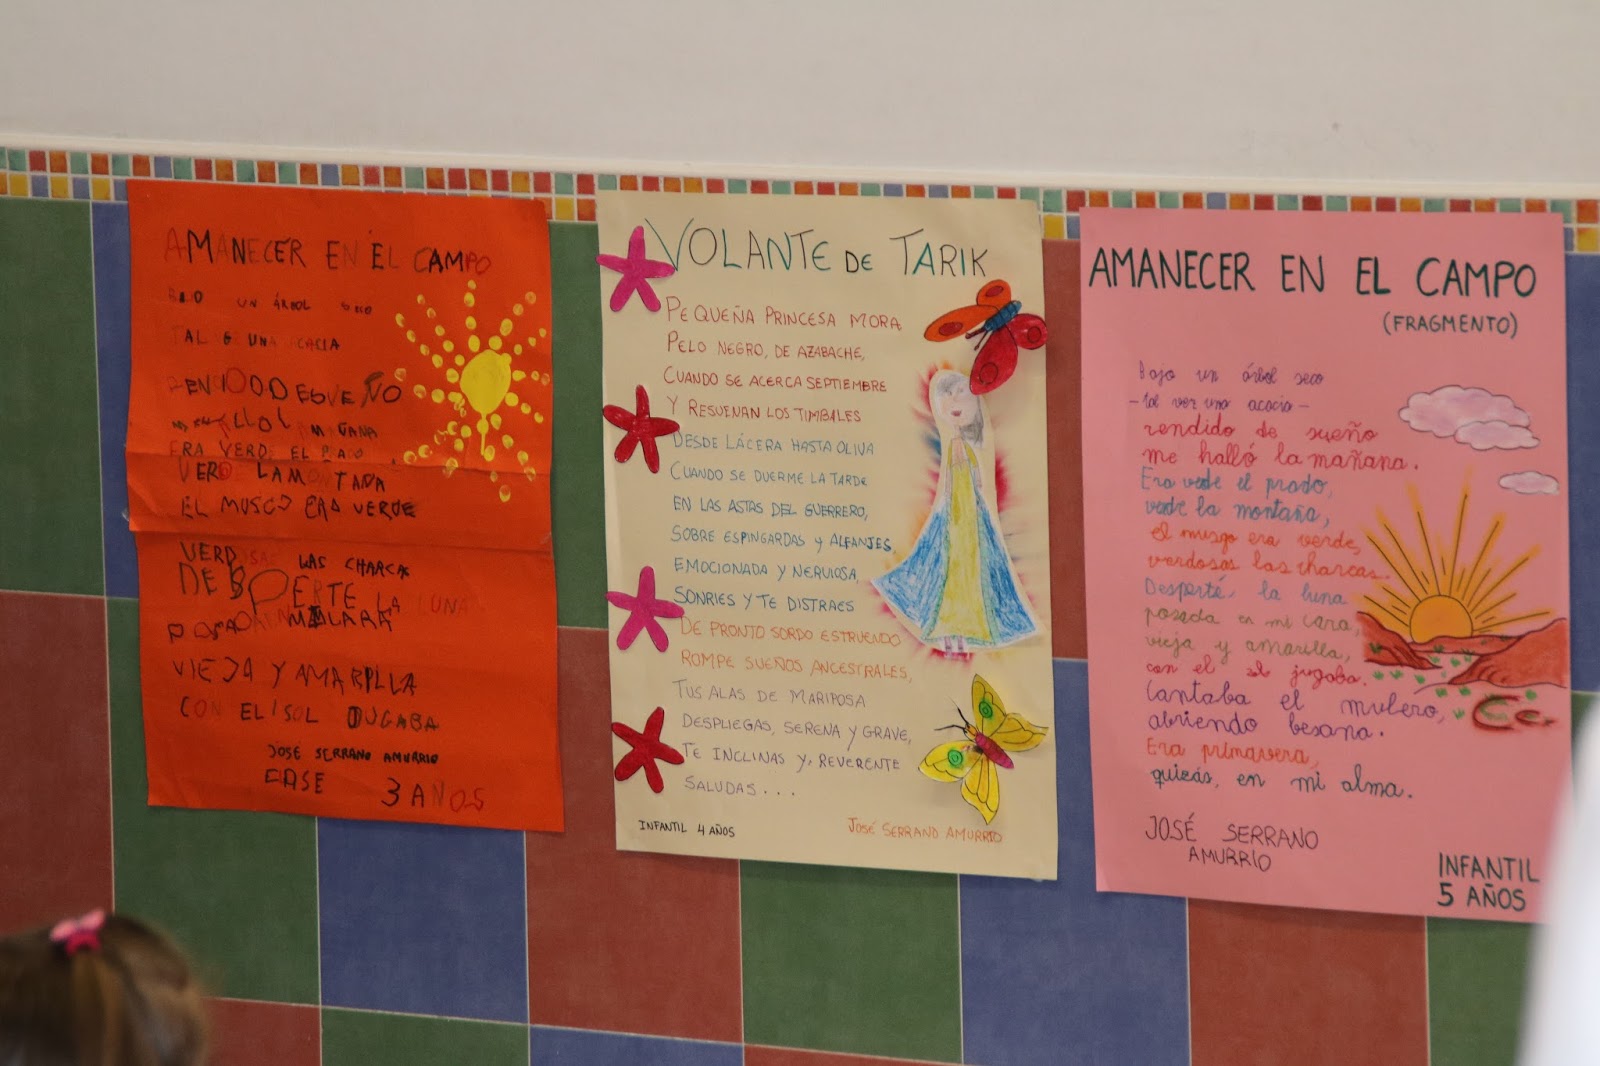 AMANECER EN EL CAMPO
BAJO UN ÁRBOL SECO
TAL UNA ACACIA
ERA VERDE EL
VERD LA MONTAÑA
EL MUSGO ERA VERDE
VERD LAS CHARCAS
LA LUNA
VIEJA Y AMARILLA
CON EL SOL JUGABA
JOSÉ SERRANO AMURRIO
3 AÑOS
VOLANTE DE TARIK
PEQUEÑA PRINCESA MORA
PELO NEGRO, DE AZABACHE,
CUANDO SE ACERCA SEPTIEMBRE
Y RESUENAN LOS TIMBALES
DESDE LÁCERA HASTA OLIVA
CUANDO SE DUERME LA TARDE
EN LAS ASTAS DEL GUERRERO,
SOBRE ESPINGARDAS Y ALFANJES,
EMOCIONADA Y NERVIOSA,
SONRIES Y TE DISTRAES
DE PRONTO SORDO ESTRUENDO
ROMPE SUEÑOS ANCESTRALES,
TUS ALAS DE MARIPOSA
DESPLIEGAS, SERENA Y GRAVE,
TE INCLINAS Y, REVERENTE
SALUDAS...
INFANTIL 4 AÑOS
JOSÉ SERRANO AMURRIO
AMANECER EN EL CAMPO
(FRAGMENTO)
Bajo un árbol seco
-tal vez una acacia-
rendido de sueño
me halló la mañana.
Era verde el prado,
verde la montaña,
el musgo era verde,
verdosas las charcas.
Desperté, la luna
posada en mi cara,
vieja y amarilla,
con el sol jugaba.
Cantaba el mulero,
abriendo besana.
Era primavera,
quizás, en mi alma.
JOSÉ SERRANO
AMURRIO
INFANTIL
5 AÑOS